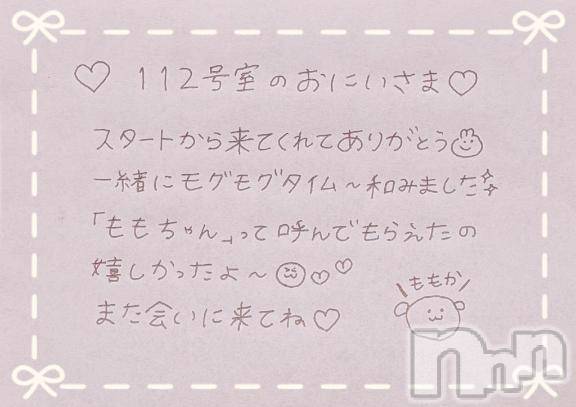 ♡ 112号室のおにいさま♡
スタートから来てくれてありがとう
一緒にモグモグタイム〜和みました
「ももちゃん」って呼んでもらえたの
嬉しかったよ〜♡♡
また会いに来てね♡
\ももか/
nnn